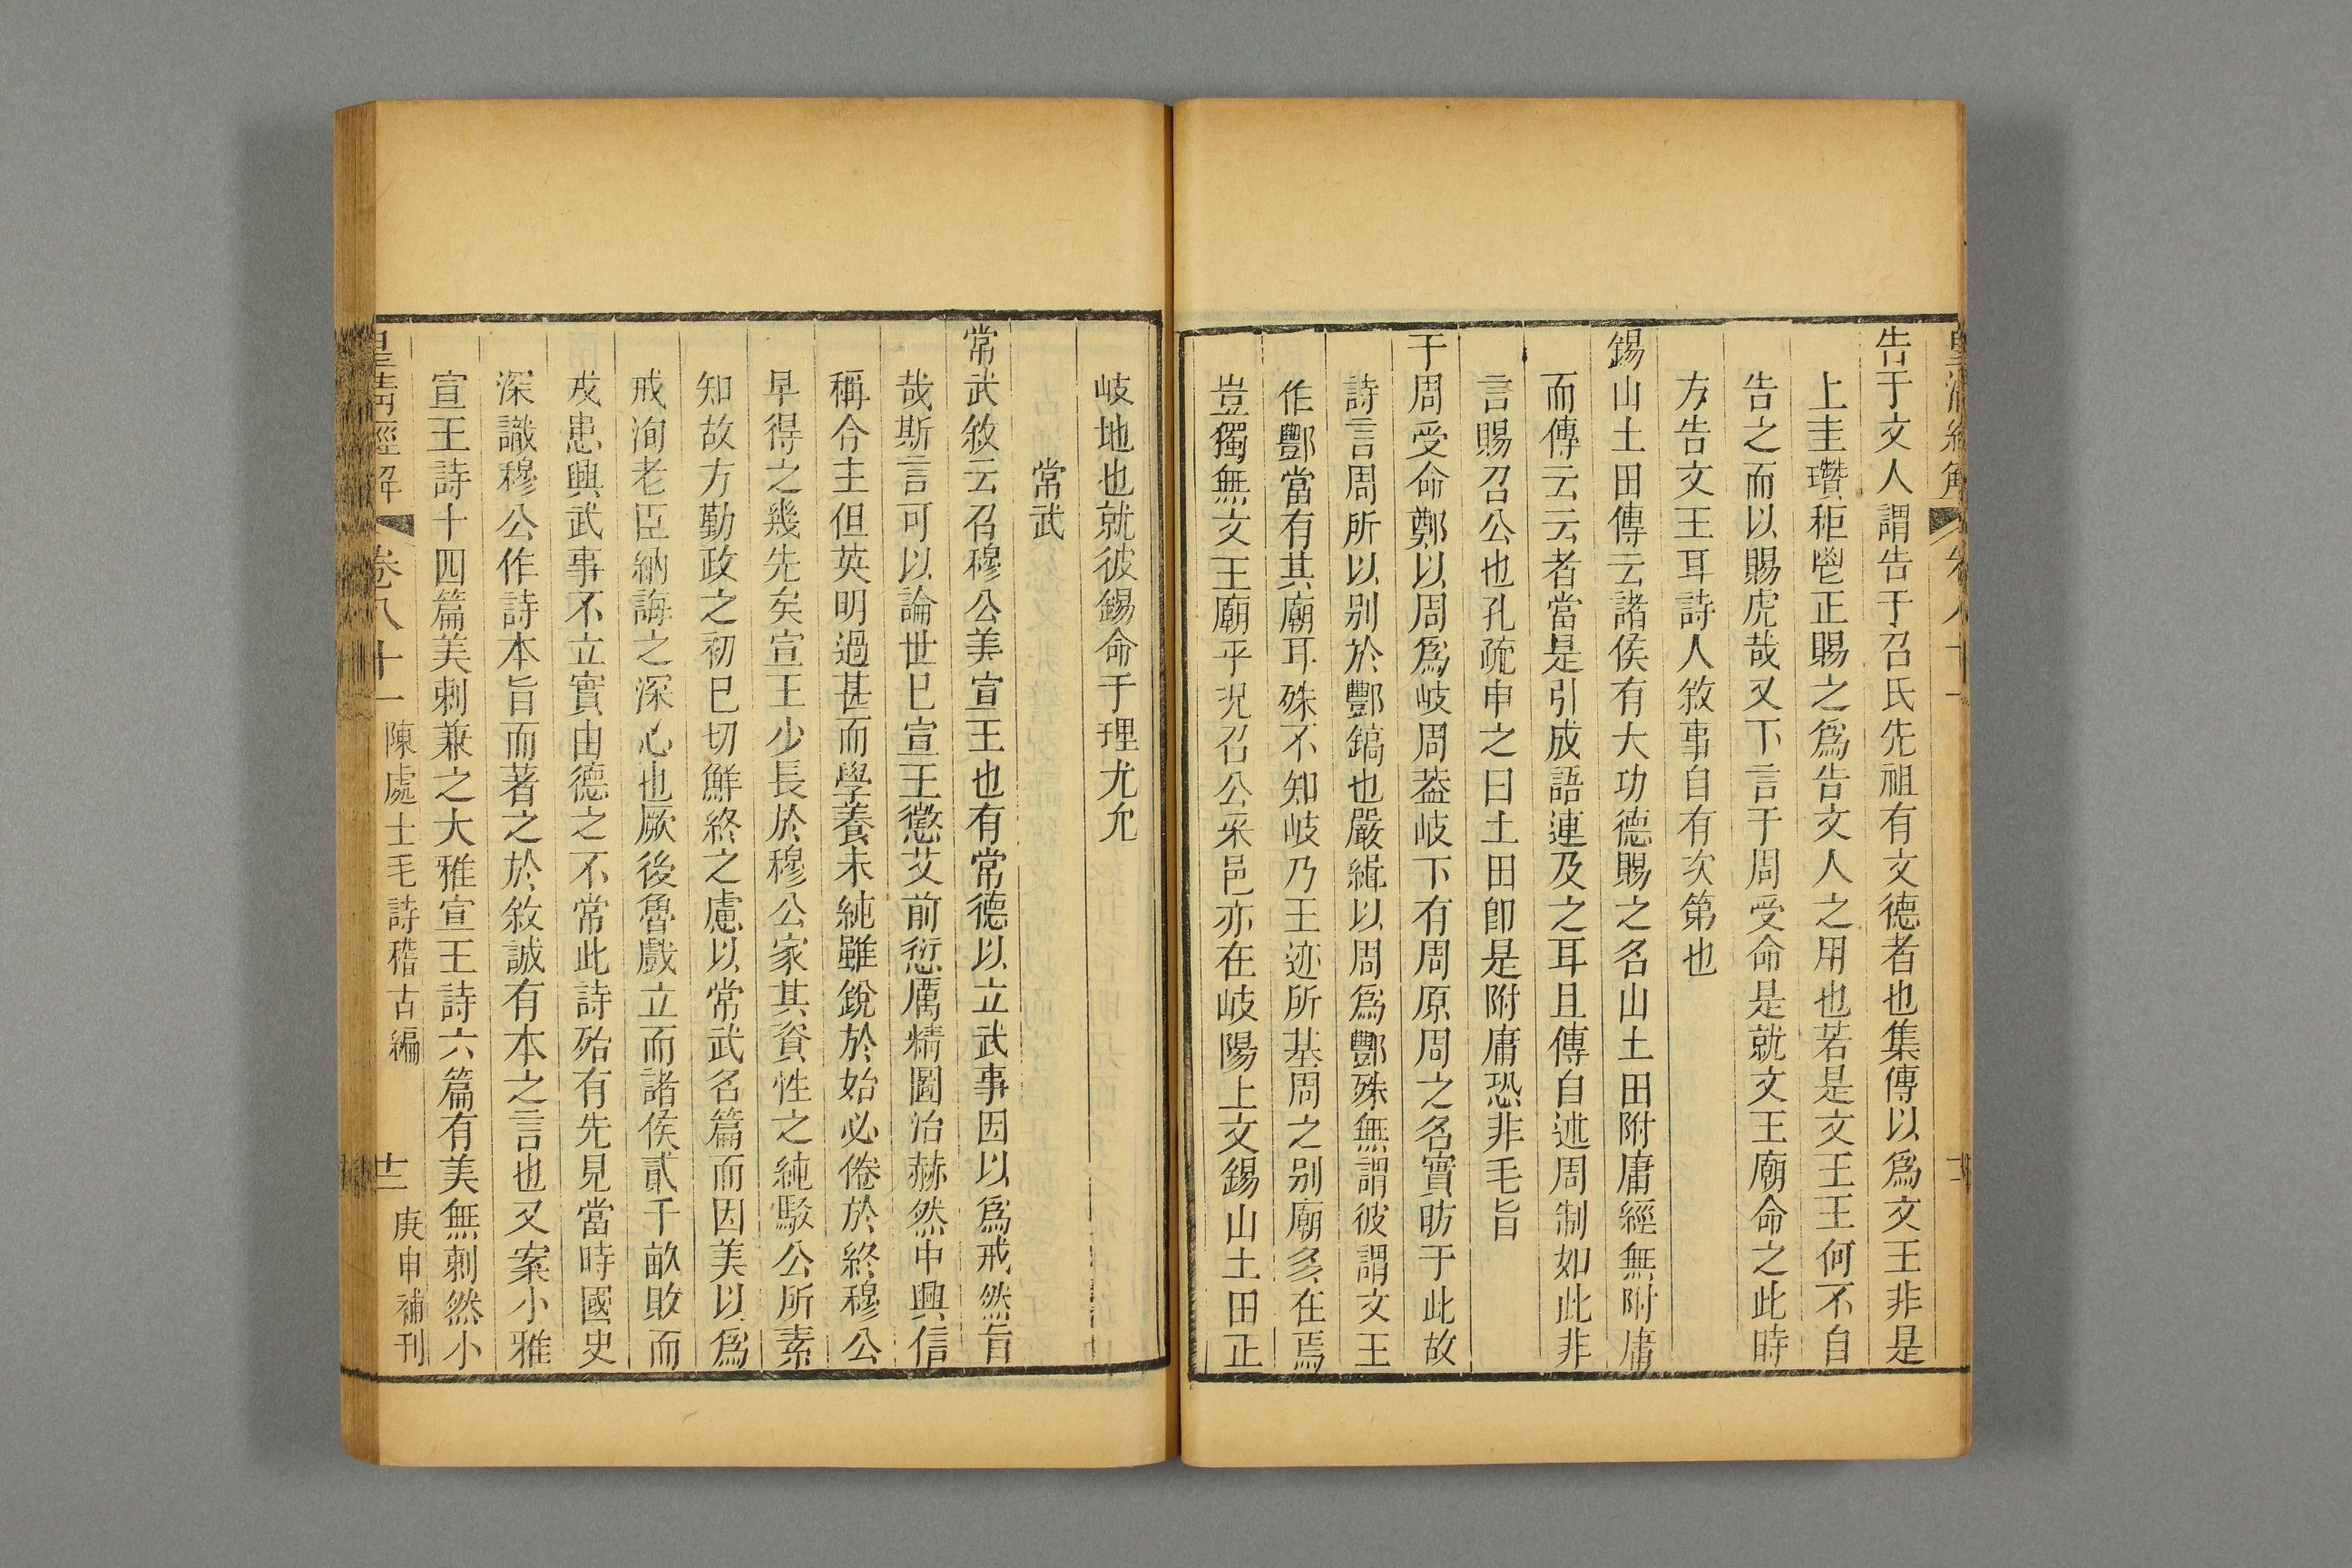 告于文人謂告于召氏先祖有文德者也集傳以爲文王非是
上圭瓚秬鬯正賜之爲告文人之用也若是文王王何不自
告之而以賜虎哉又下言于周受命是就文王廟命之此時
方告文王耳詩人敘事自有次第也
錫山土田傳云諸侯有大功德賜之名山土田附庸經無附庸
而傳云云者當是引成語連及之耳且傳自述周制如此非
言賜召公也孔疏申之曰土田卽是附庸恐非毛旨
于周受命鄭以周爲岐周葢岐下有周原周之名實昉于此故
詩言周所以别於酆鎬也嚴緝以周爲酆殊無謂彼謂文王
作酆當有其廟耳殊不知岐乃王迹所基周之别廟多在焉
豈獨無文王廟乎况召公采邑亦在岐陽上文錫山土田正
岐地也就彼錫命于理尤允
常武
常武敘云召穆公美宣王也有常德以立武事因以爲戒然旨
哉斯言可以論世巳宣王懲艾前愆厲精圖治赫然中興信
稱令主但英明過甚而學養未純雖銳於始必倦於終穆公
早得之幾先矣宣王少長於穆公家其資性之純駁公所素
知故方勤政之初巳切鮮終之慮以常武名篇而因美以爲
戒洵老臣納誨之深心也厥後魯戲立而諸侯貳千畝敗而
戎患興武事不立實由德之不常此詩殆有先見當時國史
深識穆公作詩本旨而著之於敘誠有本之言也又案小雅
宣王詩十四篇美刺兼之大雅宣王詩六篇有美無刺然小
皇清經解 卷八十一 陳處士毛詩稽古編 十二 庚申補刊